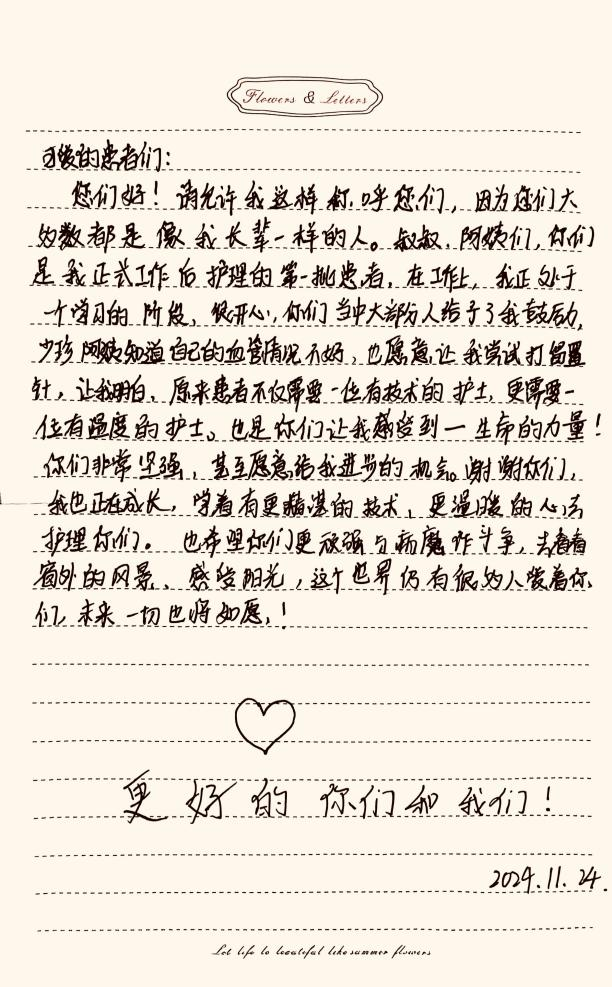 Flowers & Letters
可爱的患者们：
您们好！请允许我这样称呼您们，因为您们大
多数都是像我长辈一样的人。叔叔、阿姨们，你们
是我正式工作后护理的第一批患者，在工作上，我正处于
一个学习的阶段，很开心，你们当中大部分人给予了我鼓励，
少珍阿姨知道自己的血管情况不好，也愿意让我尝试打留置
针，让我明白，原来患者不仅需要一位有技术的护士，更需要一
位有温度的护士。也是你们让我感受到一生命的力量！
你们非常坚强，甚至愿意给我进步的机会。谢谢你们，
我也正在成长，学着有更精湛的技术、更温暖的心去
护理你们。也希望你们更顽强与病魔作斗争，去看看
窗外的风景、感受阳光，这个世界仍有很多人爱着你
们，未来一切也将如愿！
更好的你们和我们！
2024.11.24.
Let life be beautiful like summer flowers